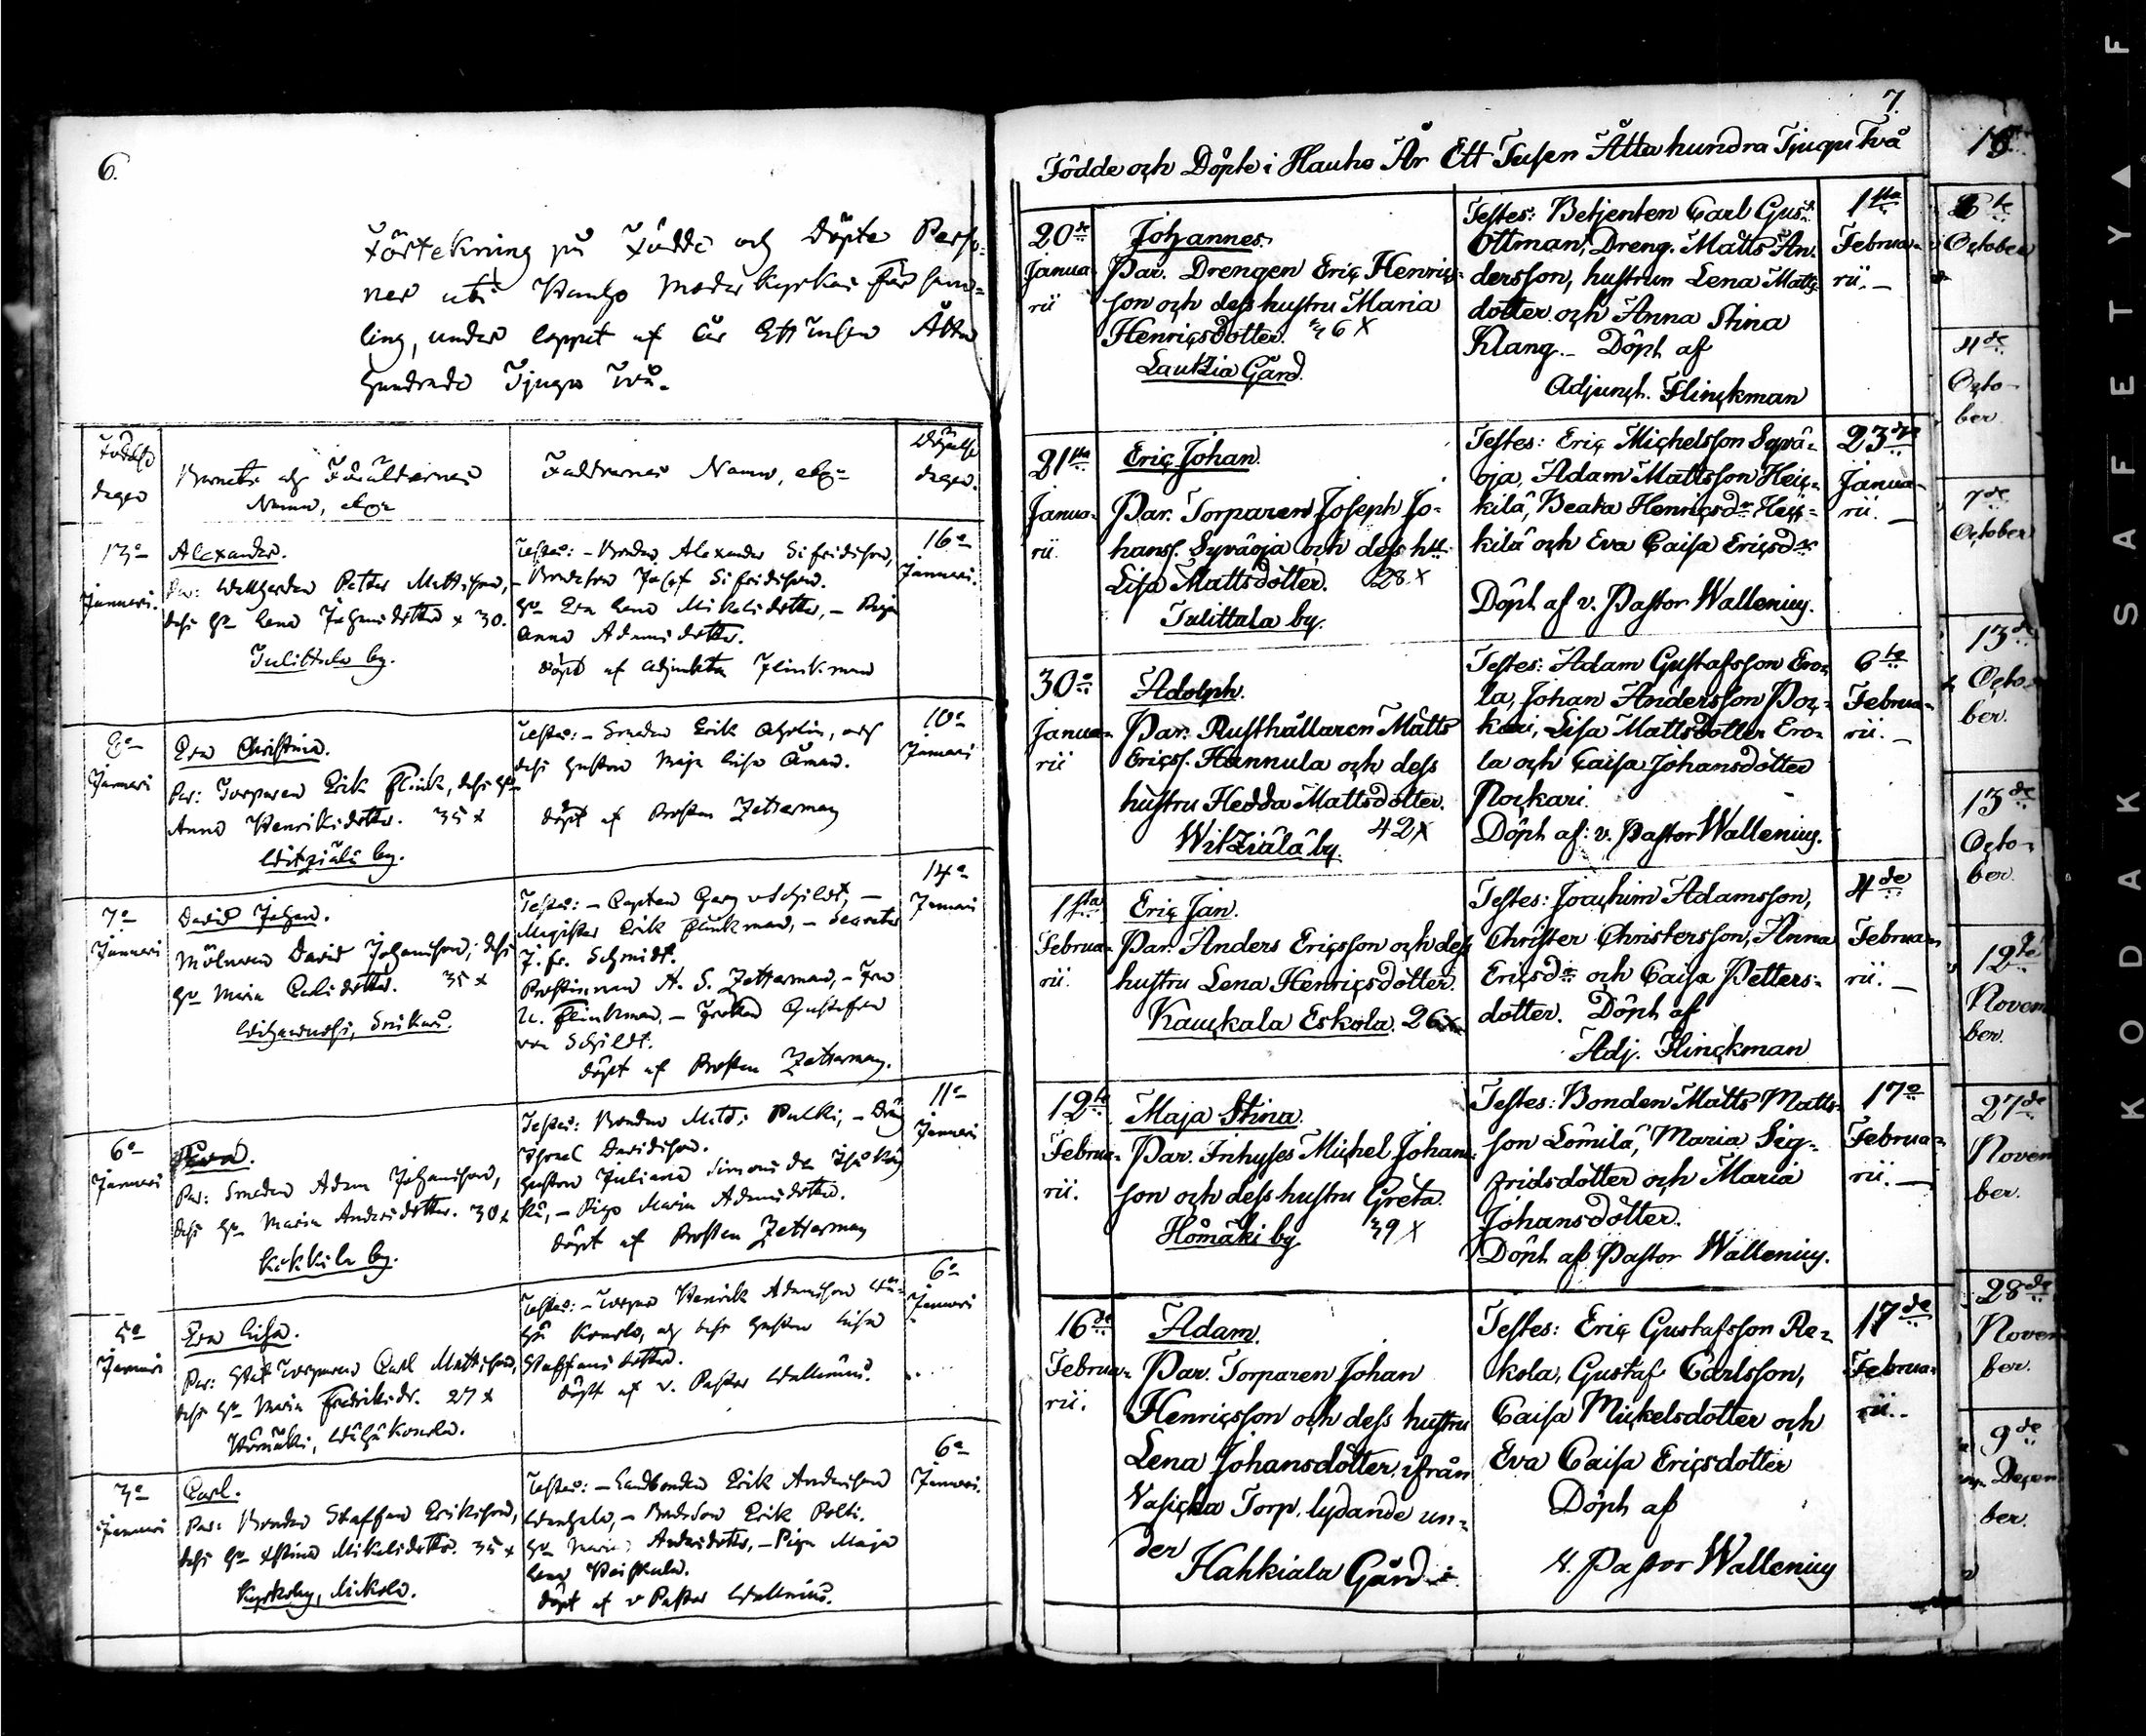 6.
Förtekning på Födde och Döpte Perso-
ner uti Hauho Moderkyrkas Försam-
ling, under loppet af år Ett Tusen Åtta
hundrade Tjugu Två.
Födelse
dagen
Barnets och Föräldrarnes
Namn, etc:
Faddrarnes Namn, etc:
Döpelse
dagen.
13e
Januari.
Alexander.
Par: Petter Mattsson,
dess Hu Lena Johansdotter x 30.
Tulittula by.
Testes: – Bonden Alexander Sifridsson,
– Bondeson Josef Sifridsson.
Hu Eva Lena Mikelsdotter, – Piga
Anna Adamsdotter.
döpt af Adjunkten Flinkman
16e
Januari.
8e
Januari
Eva Christina.
Par: Torparen Erik Flink, dess Hu
Anna Henriksdotter. 35 x
Witziälä by.
Testes: – Smeden Erik och
dess hustru Maja Lisa Öman.
döpt af Prosten Zetterman
10e
Januari
7e
Januari
David Johan.
Mölnaren David Johansson; dess
Hu Maria Carlsdotter. 35 x
Testes: – Capten Georg v Schildt, –
Magister Erik Flinkman, – Secreter
J. Fr. Schmidt.
Prostinnan A. S. Zetterman, – Fru
U. Flinkman, – Fröken Gustafva
von Schildt.
döpt af Prosten Zetterman.
14e
Januari
6e
Januari
Par: Smeden Adam Johansson,
dess Hu Maria Andersdotter. 30 x
Kokkila by.
Testes: Bonden Matts Pulkki, – Dräng
Israel Davidsson.
Hustru Juliana Simonsdr
– Piga Maria Adamsdotter.
döpt af Prosten Zetterman
11e
Januari
5e
Januari
Eva Lisa.
Par: Stat Torparen Carl Mattsson,
dess Hu Maria Fredriksdr. 27 x
Testes: – Torpar Henrik Adamsson
och dess hustru Lisa
Staffansdotter.
döpt af v. Pastor Wallenius.
6e
Januari
3e
Januari
Carl.
Par: Bonden Staffan Eriksson,
dess Hu Stina Mikelsdotter. 35 x
Kyrkoby, Mickola.
Testes: – Landbonden Erik Andersson
– Bondeson Erik Polti.
Hu Maria Andersdotter, – Piga Maja
Lena
döpt af v Pastor Wallenius.
6e
Januari.
7.
Födde och Döpte i Hauho År Ett Tusen Åtta hundra Tjugu Två
20de
Janua-
rii
Johannes.
Par. Drengen Eriç Henriçs-
son och dess hustru Maria
Henriçsdotter. 36 x
Lautzia Gård.
Testes: Betjenten Carl Gust.
Ottman, Dreng. Matts An-
dersson, hustrun Lena Matts-
dotter och Anna Stina
Klang. – Döpt af
Adjunct. Flinckman
1sta
Februa-
rii. –
21sta
Janua-
rii.
Eriç Johan.
Par. Torparen Joseph Jo-
hanss. Syväoja och dess hu
Lisa Mattsdotter. 28 x
Tulittula by.
Testes: Eriç Michelsson Syvä-
oja, Adam Mattsson Heic-
kilä, Beata Henriçsdr Heic-
kilä och Eva Caisa Eriçsdr
Döpt af v. Pastor Wallenius.
23dje
Janua-
rii. –
30e
Janua-
rii
Adolph.
Par. Rusthållaren Matts
Ericss. Hannula och dess
hustru Hedda Mattsdotter.
Witziälä by. 42 x
Testes: Adam Gustafsson Ero-
la, Johan Andersson Poc-
kari, Lisa Mattsdotter Ero-
la och Caisa Johansdotter
Pockari.
Döpt af: v. Pastor Wallenius.
6te
Februa-
rii. –
1sta
Februa-
rii.
Eriç Jan.
Par. Anders Ericsson och dess
hustru Lena Henriçsdotter.
Kauckala Eskola. 26 x
Testes: Joachim Adamsson,
Christer Christersson, Anna
Ericsdr och Caisa Petters-
dotter. Döpt af
Adj. Flinckman
4de
Februa-
rii. –
12te
Februa-
rii.
Maja Stina.
Par. Inhyses Michel Johans-
son och dess hustru Greta.
Homäki by. 39 x
Testes: Bonden Matts Matts-
son Lömilä, Maria Sig-
fridsdotter och Maria
Johansdotter.
Döpt af v Pastor Wallenius.
17e
Februa-
rii. –
16de
Februa-
rii.
Adam.
Par. Torparen Johan
Henricsson och dess hustru
Lena Johansdotter, ifrån
Vasicka Torp, lydande un-
der
Hahkiala Gård.
Testes: Eriç Gustafsson Re-
kola, Gustaf Carlsson,
Caisa Mickelsdotter och
Eva Caisa Ericsdotter
Döpt af
V. Pastor Wallenius
17de
Februa-
rii.
October
4de
Octo-
ber.
7de
October
13de
Octo-
ber.
13de
Octo-
ber.
12te
Novem
ber.
27de
Novem
ber.
28de
Novem
ber.
9de
Decem
ber.
KODAK SAFETY F